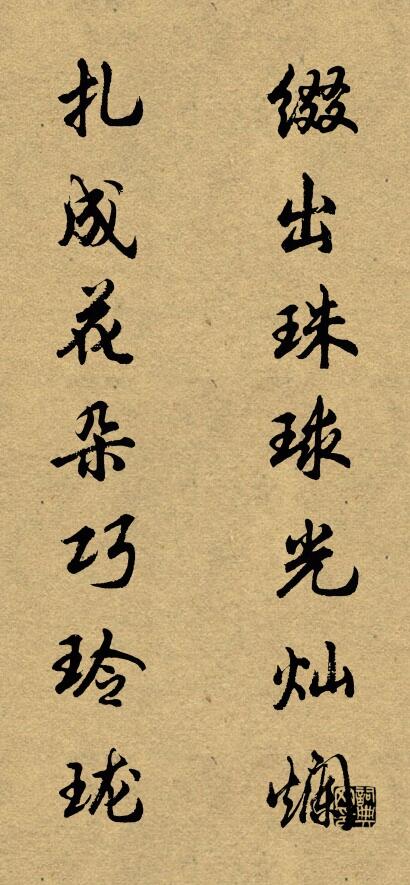 缀出珠球光灿斓
扎成花朵巧玲珑